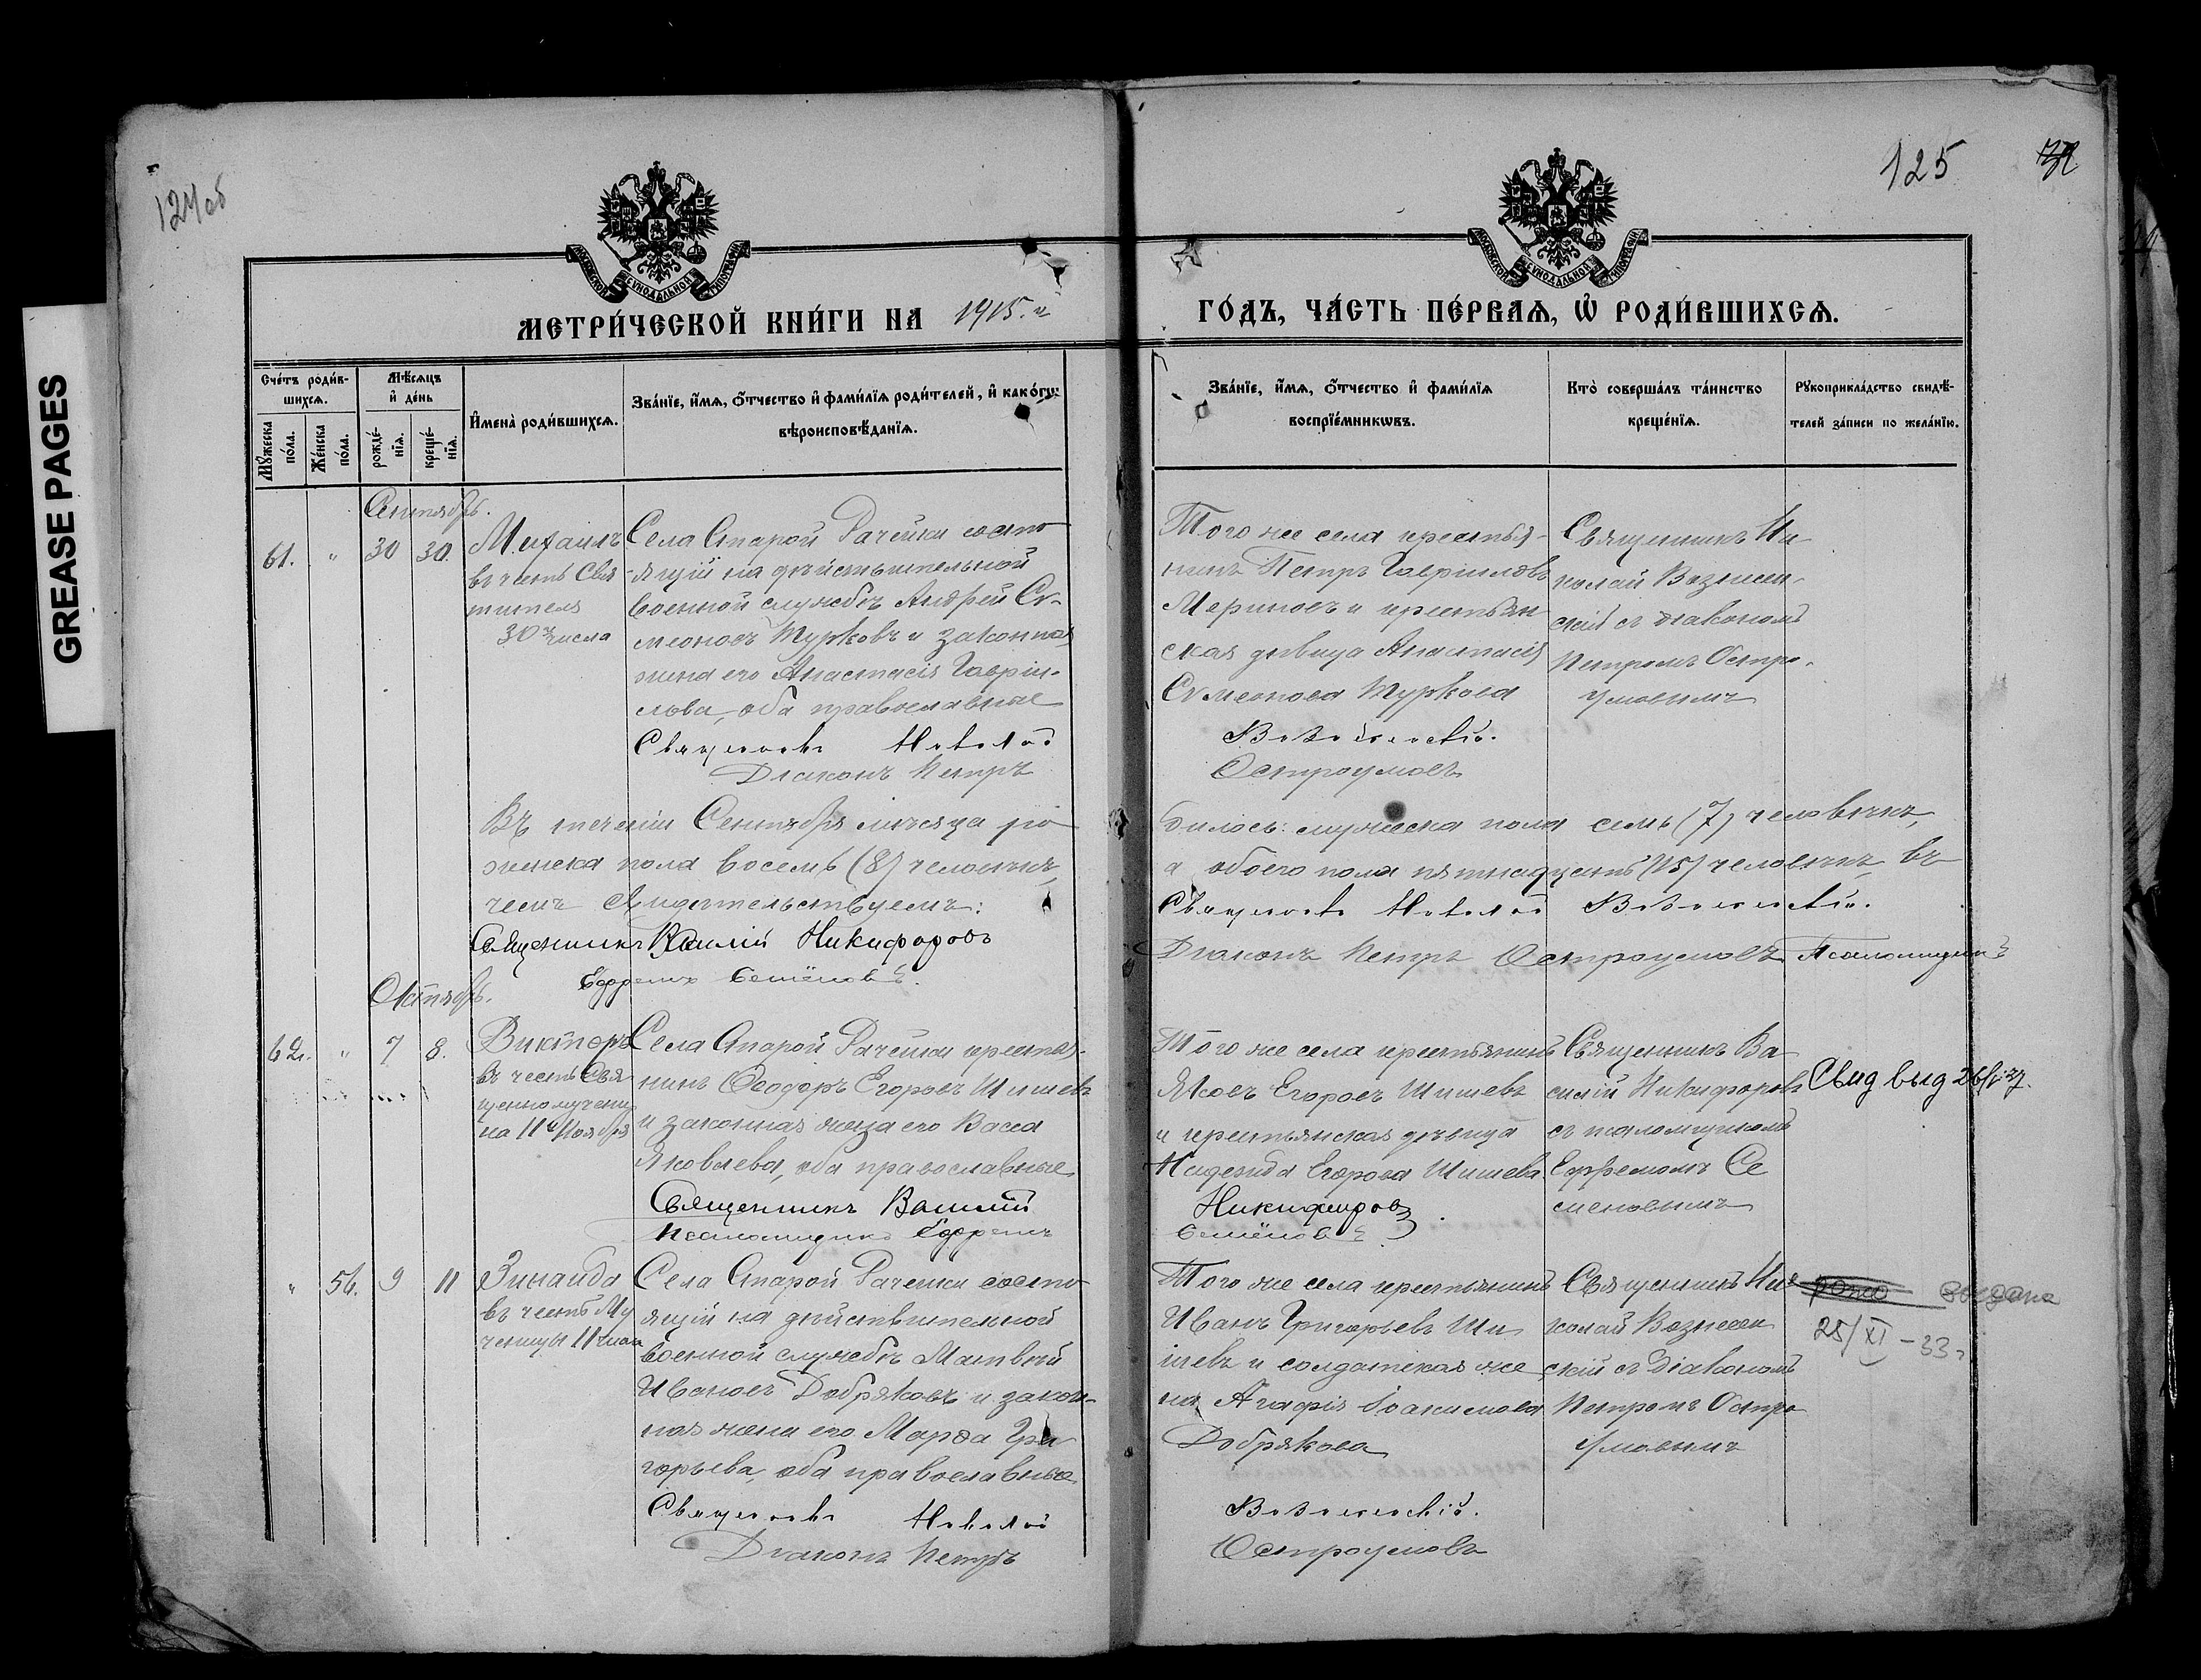 GREASE PAGES
124об
125
МОСКОВСКОЙ СѴНОДАЛЬНОЙ ТИПОГРАФІИ
МОСКОВСКОЙ СѴНОДАЛЬНОЙ ТИПОГРАФІИ
МЕТРИ́ЧЕСКОЙ КНИ́ГИ НА 1915.й
ГО́ДЪ, ЧА́СТЬ ПЕ́РВАѦ, Ѡ҆ РОДИ́ВШИХСѦ.
Сче́тъ роди́в-
шихсѧ.
Мꙋ́жеска
по́ла.
Же́нска
по́ла.
Мѣ́сѧцъ
и҆ де́нь
рожде́-
нїѧ.
креще́-
нїѧ.
И҆мена̀ роди́вшихсѧ.
Зва́нїе, и҆́мѧ, ѻ҆́тчество и҆ фами́лїѧ роди́телей, и҆ како́гѡ
вѣроисповѣ́данїѧ.
Зва́нїе, и҆́мѧ, ѻ҆́тчество и҆ фами́лїѧ
воспрїе́мникѡвъ.
Кто̀ соверша́лъ та́инство
креще́нїѧ.
Рꙋкоприкла́дство свидѣ́-
телей за́писи по жела́нїю.
Сентябрь.
61. " 30 30.
Михаилъ
въ честь Свя
тителя
30 числа
Села Старой Рачейки состо
-ящій на дѣйствительной
военной службѣ Андрей Си-
меоновъ Турковъ и законная
жена его Анастасія Гаврiи-
лова, оба православные
Священникъ Николай
Діаконъ Петръ
Того же села крестья-
нинъ Петръ Гавріиловъ
Мериновъ и крестьян
ская дѣвица Анастасія
Симеонова Туркова
Вознесенскій.
Остроумовъ
Священникъ Ни
колай Вознесен-
скій съ діакономъ
Петромъ Остро-
умовымъ
Въ теченіи Сентября мѣсяца ро
дилось: мужеска пола семь (7) человѣкъ,
женска пола восемь (8) человѣкъ,
а обоего пола пятнадцать (15) человѣкъ, въ
чемъ свидѣтельствуемъ:
Священникъ Николай Вознесенскій.
Священникъ Василій Никифоровъ
Діаконъ Петръ Остроумовъ Псаломщикъ
Ефремъ Семёновъ.
Октябрь.
62. " 7 8.
Викторъ
въ честь Свя
щенномучени
на 11е Ноября
Села Старой Рачейки крестья-
нинъ Ѳеодоръ Егоровъ Шишевъ
и законная жена его Васса
Яковлева, оба православные
Священникъ Василій
Псаломщикъ Ефремъ
Того же села крестьянинъ
Яковъ Егоровъ Шишевъ
и крестьянская дѣвица
Надежда Егорова Шишева.
Никифоровъ
Семёновъ
Священникъ Ва
силій Никифоровъ
съ псаломщикомъ
Ефремомъ Се
меновымъ
Свид выд
" 56. 9 11
Зинаида
въ честь Му
ченицы 11 числа
Села Старой Рачейки состо
ящій на дѣйствительной
военной службѣ Матвѣй
Ивановъ Добряковъ и закон-
ная жена его Марѳа Гри
горьева, оба православные
Священникъ Николай
Діаконъ Петръ
Того же села крестьянинъ
Иванъ Григорьевъ Ши
шевъ и солдатская же
на Агафія Іоакимова
Добрякова
Вознесенскій.
Остроумовъ
Священникъ Ни
колай Вознесен
скій съ Діакономъ
Петромъ Остро
умовымъ
выдана
25/XI-33г